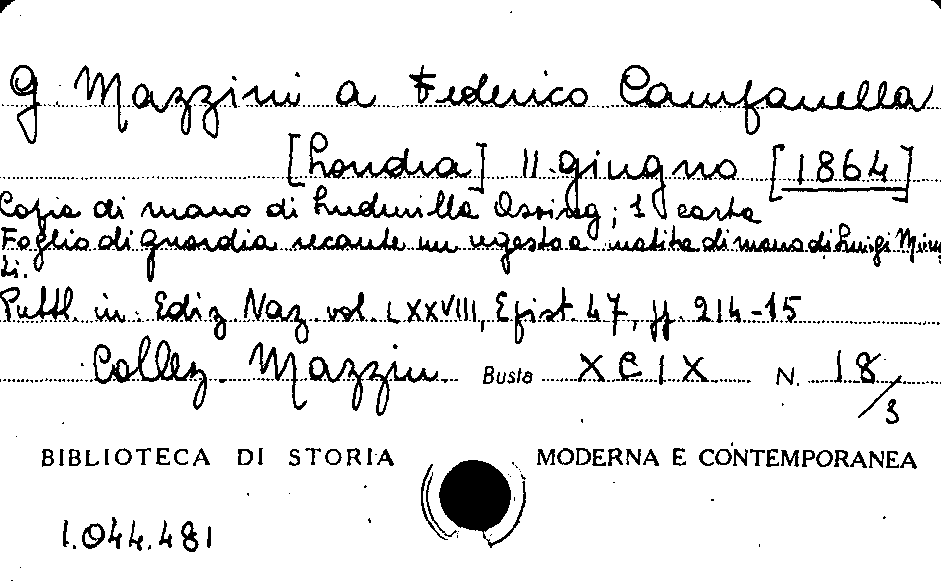 G. Mazzini a Federico Campanella
[Londra] 11 giugno [1864]
Copia di mano di Ludmilla Assing; 1 carta
Foglio di guardia recante un regesto a matita di mano di Luigi Minu
ti.
Pubbl. in Ediz. Naz. vol. LXXVIII, Epist 47, pp. 214-15
Collez. Mazzini Busta XCIX N. 18/3
BIBLIOTECA DI STORIA MODERNA E CONTEMPORANEA
1.044.481